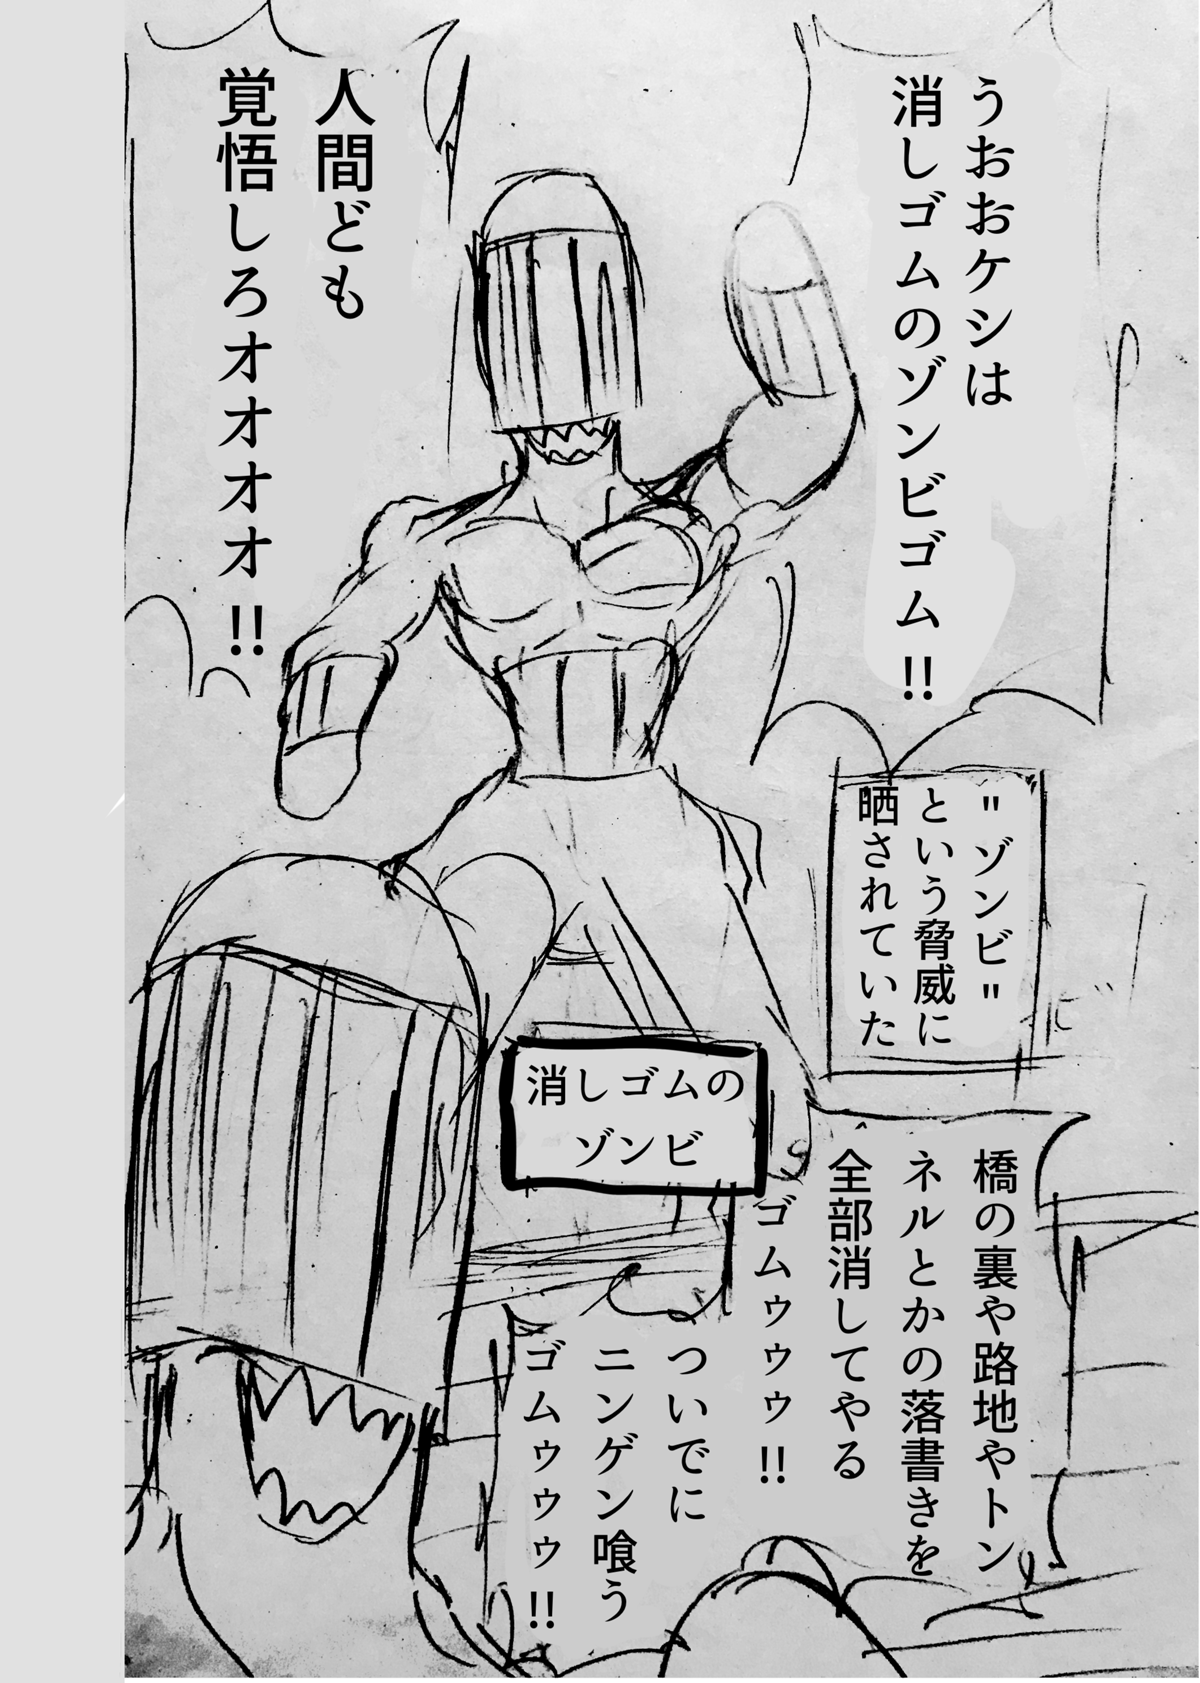 うおおケシは
消しゴムのゾンビゴム!!
人間ども
覚悟しろオオオオ!!
"ゾンビ"
という脅威に
晒されていた
消しゴムの
ゾンビ
橋の裏や路地やトン
ネルとかの落書きを
全部消してやる
ゴムゥゥゥ!!
ついでに
ニンゲン喰う
ゴムゥゥゥ!!